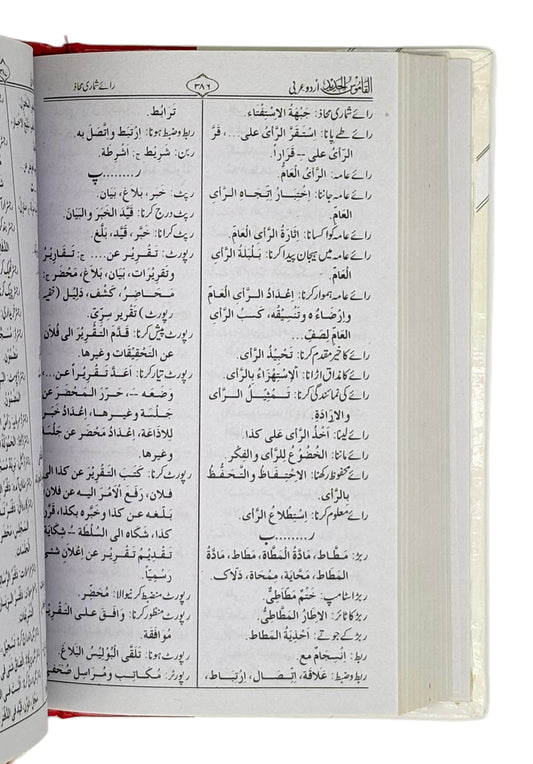 القاموس الجدید اردو عربی
۳۸۶
رائے شماری محاذ
رائے شماری محاذ: جَبْهَةُ الاِسْتِفْتَاء.
رائے طے پانا: اِسْتَقَرَّ الرَّأىُ على...، قَرَّ
الرّأىُ على – قَرَاراً.
رائے عامہ: الرَّأىُ الْعَامُّ.
رائے عامہ جاننا: اِخْتِبَارُ اِتِّجَاهِ الرَّأى
العَامِ.
رائے عامہ کو اکسانا: اِثَارَةُ الرَّأىِ العَامِّ.
رائے عامہ میں ہیجان پیدا کرنا: بَلْبَلَةُ الرَّأى
العَامِّ.
رائے عامہ ہموار کرنا: اِعْدَادُ الرَّأى العَامِ
وإرْضَاءُه وتَنْسِيْقُه، كَسبُ الرَّأى
العَامِّ لِصَفِّ...
رائے کا خیر مقدم کرنا: تَحْبِيْذُ الرَّأى.
رائے کا مذاق اڑانا: الْاِسْتِهْزَاءُ بِالرَّأى.
رائے کی نمائندگی کرنا: تَمْثِيْلُ الرَّأى
والاِرَادَةِ.
رائے لینا: اَخْذُ الرَّأى على كذا.
رائے ماننا: الْخُضُوْعُ لِلرَّأى والفِكْرِ.
رائے محفوظ رکھنا: الاِحْتِفَاظُ والتَّحَفُّظُ
بِالرَّأى.
رائے معلوم کرنا: اِسْتِطْلَاعُ الرَّأى.
ر........ب
ربڑ: مَطَّاط، مَادَّةُ الْمَطَّاطِ، مَطَاط، مَادَّةُ
المَطَاط، مَحَّايَة، مِمْحَاة، دَلَّاك.
ربڑ اسٹامپ: خَتْم مَطَّاطِىٌّ.
ربڑ کا ٹائر: الاِطَارُ المَطَاطِىُّ.
ربڑ کے جوتے: اَحْذِيَةُ المَطَاط.
ربط: اِنْسِجَام مع.
ربط وضبط: عَلَاقَة، اِتِّصَال، اِرْتِبَاط،
تَرَابُط.
ربط وضبط ہونا: اِرْتَبَطَ واتَّصَلَ به.
ربن: شَرِيْط ج: اَشْرِطَة.
ر........پ
رپٹ: خَبَر، بَلَاغ، بَيَان.
رپٹ درج کرنا: قَيَّدَ الخَبَرَ والبَيَانَ.
رپٹ کرنا: خَبَّرَ، قَيَّدَ، بَلَّغَ.
رپورٹ: تَقْرِيْر عن... ج: تَقَارِيْرُ
وتَقْرِيْرَات، بَيَان، بَلَاغ، مَحْضَر ج:
مَحَاضِرُ، كَشْف، دَلِيْل (خفیہ
رپورٹ) تَقْرِير سِرِّىّ.
رپورٹ پیش کرنا: قَدَّمَ التَّقْرِيْرَ الى فُلَان
عن التَّحْقِيْقَات وغيرها.
رپورٹ تیار کرنا: اَعَدَّ تَقْرِيْراً عن...
وَضَعَه –، حَرَّرَ المَحْضَرَ عن
جَلْسَة وغيرها، اِعْدَادُ خَبَر
لِلإذَاعَةِ، اِعْدَادُ مَحْضَر عن جَلْسَة
وغيرها.
رپورٹ کرنا: كَتَبَ التَّقْرِيْرَ عن كذا الى
فلان، رَفَعَ الْاَمْرَ اليه عن فلان
بَلَّغَه عن كذا وخَبَّرَه بكذا، قَرَّرَ
كذا، شَكَاه الى السُلْطَة – شِكَايَة
تَقْدِيْمُ تَقْرِيْر عن اِعْلَان شئى
رَسْمِيّاً.
رپورٹ منضبط کرنیوالا: مُحَضِّر.
رپورٹ منظور کرنا: وَافَقَ على التَّقْرِيْرِ
مُوَافَقَة.
رپورٹ ہونا: تَلَقَّى الْبُوْلِيْسُ البَلَاغَ.
رپورٹر: مُكَاتِب ومُرَاسِل صُحَفِى